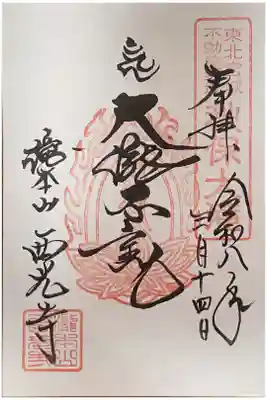 東北
不動
奉拝
令和八年
三月十四日
大瀧不動尊
瀧本山 西光寺